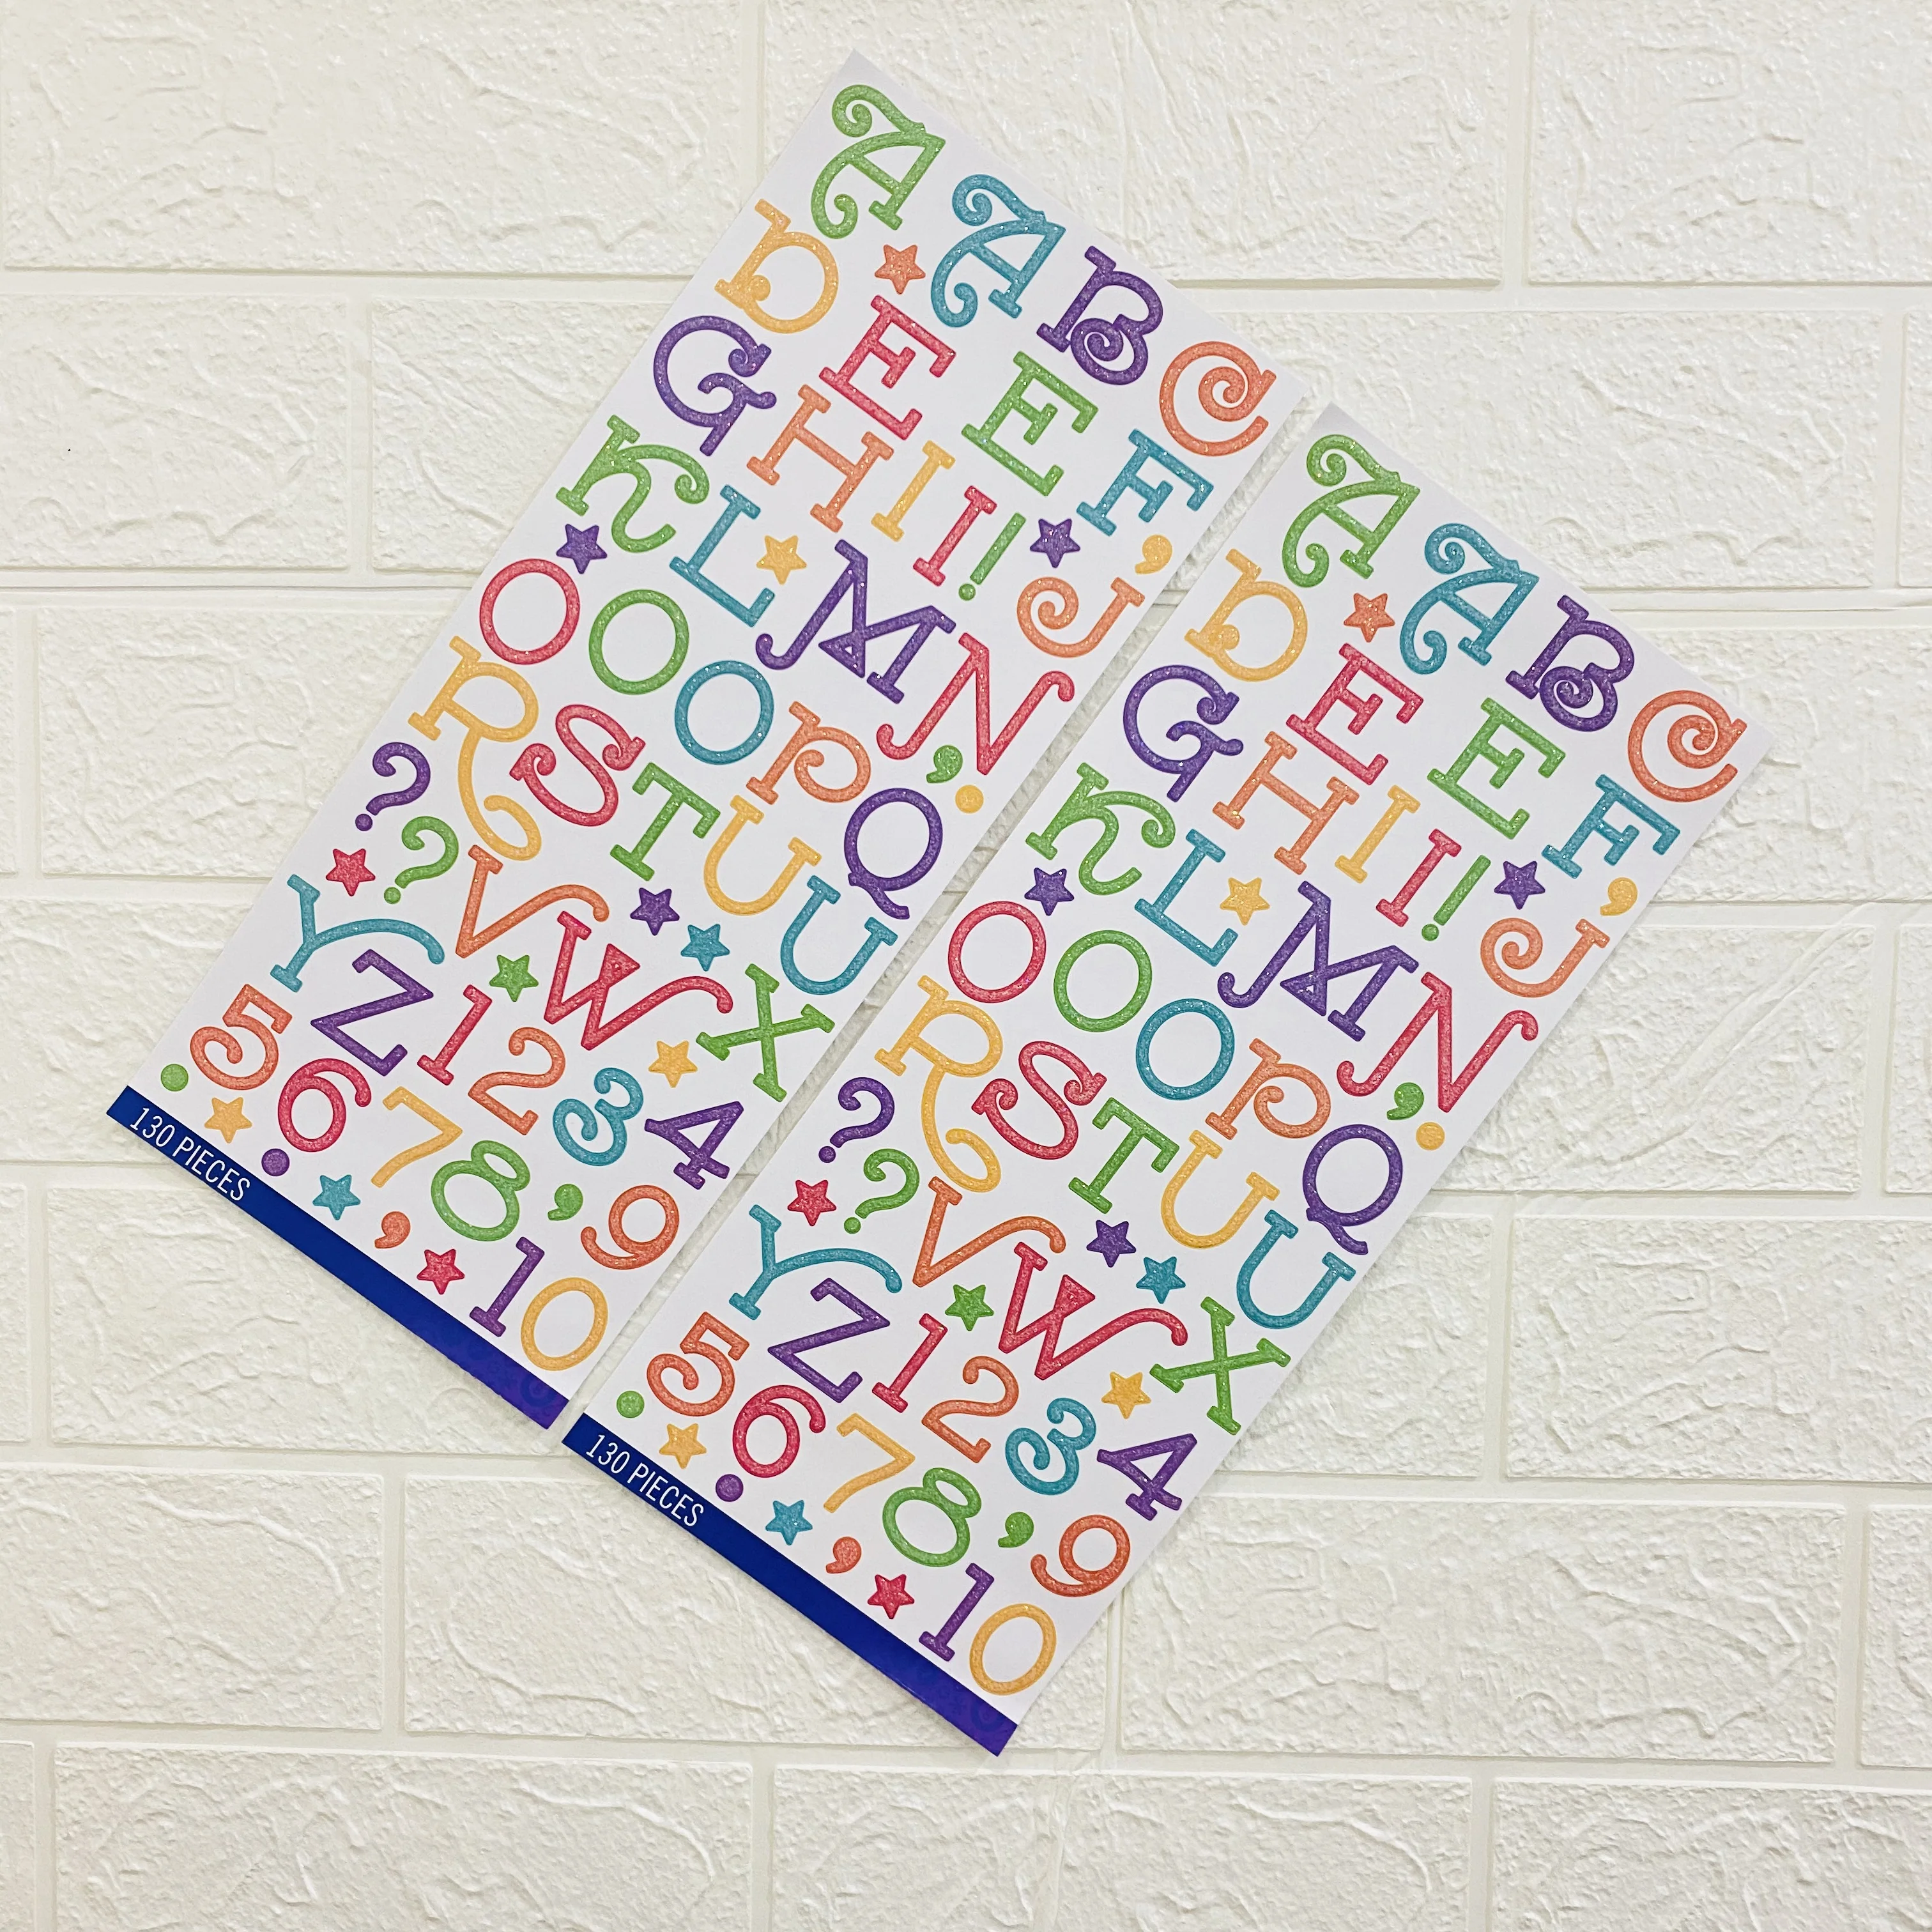 A A B C
D E E F ,
G H I I ! J
K L M N , .
O O O P Q
R S T U U
? ? V W X
Y Z 1 2 3 4
5 6 7 8 , 9
. . , 10
130 PIECES
A A B C
D E E F ,
G H I I ! J
K L M N , .
O O O P Q
R S T U U
? ? V W X
Y Z 1 2 3 4
5 6 7 8 , 9
. . , 10
130 PIECES